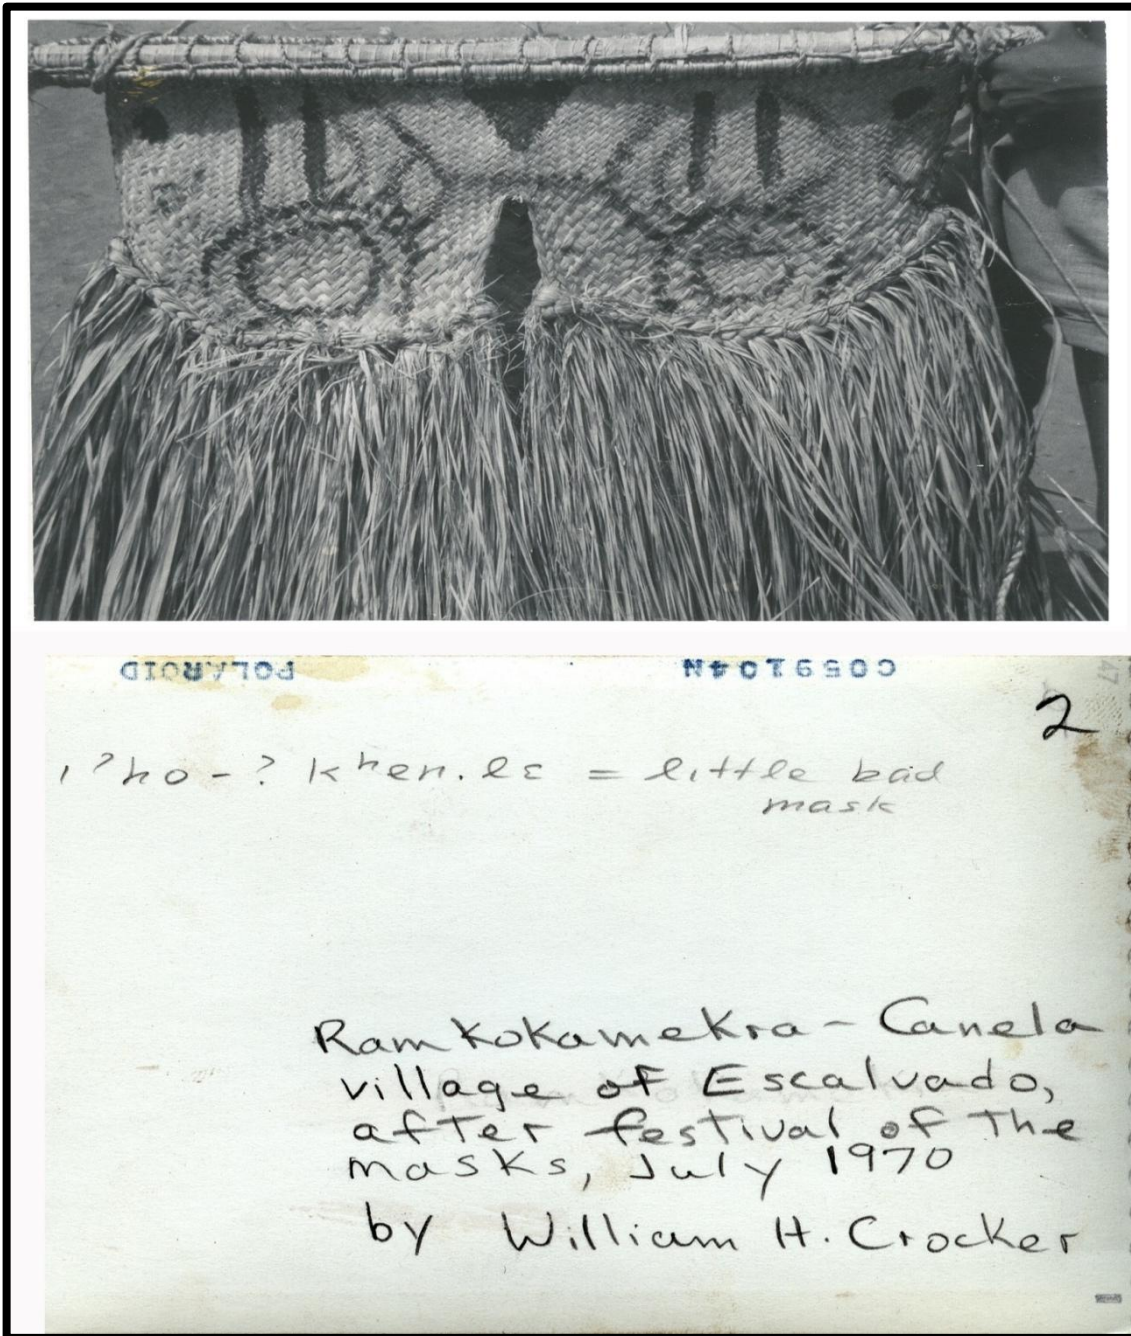 POLAROID C059104N
2
ı ʔho-ʔ kʰen.lɛ = little bad
mask
Ramkokamekra - Canela
village of Escalvado,
after festival of the
masks, July 1970
by William H. Crocker